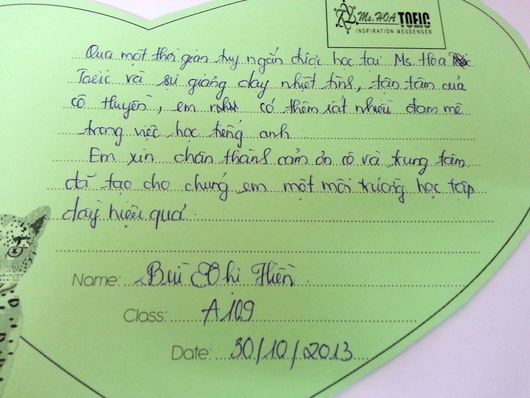 Ms. HOA TOEIC
INSPIRATION MESSENGER
Qua một thời gian tuy ngắn được học tại Ms. Hoa
Toeic và sự giảng dạy nhiệt tình, tận tâm của
cô Huyền, em như có thêm rất nhiều đam mê
trong việc học tiếng anh
Em xin chân thành cảm ơn cô và trung tâm
đã tạo cho chúng em một môi trường học tập
đầy hiệu quả.
Name: Bùi Thị Hiền
Class: A109
Date: 30/10/2013